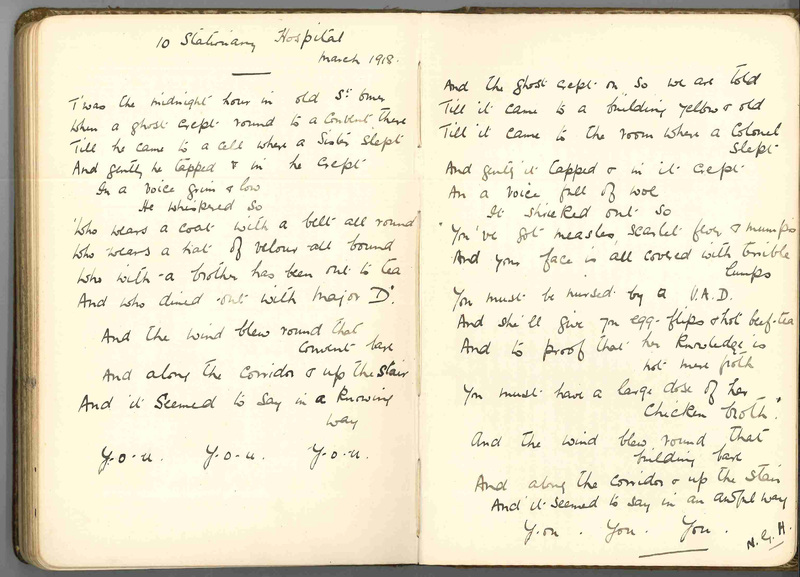 10 Stationary Hospital
March 1918.
T'was the midnight hour in old St. Omer
When a ghost crept round to a Convent there
Till he came to a cell where a Sister slept
And gently he tapped & in he crept
In a voice grim & low
He whispered so
'Who wears a coat with a belt all round
Who wears a hat of velour all bound
Who with a brother has been out to tea
And who dined out with Major D'.
And the wind blew round that
Convent bare
And along the corridor & up the stair
And it seemed to say in a knowing
way
Y-o-u. Y-o-u. Y-o-u.
And the ghost crept on, so we are told
Till it came to a building yellow & old
Till it came to the room where a Colonel
Slept
And gently it tapped & in it crept
An a voice full of woe
It shrieked out so
"You've got measles, scarlet fever, & mumps
And your face is all covered with terrible
lumps
You must be nursed by a V.A.D.
And she'll give you egg-flips & hot beef-tea
And to proof that her knowledge is
not mere froth
You must have a large dose of her
Chicken broth."
And the wind blew round that
building bare
And along the corridor & up the stair
And it seemed to say in an awful way
You. You. You.
N.G.H.